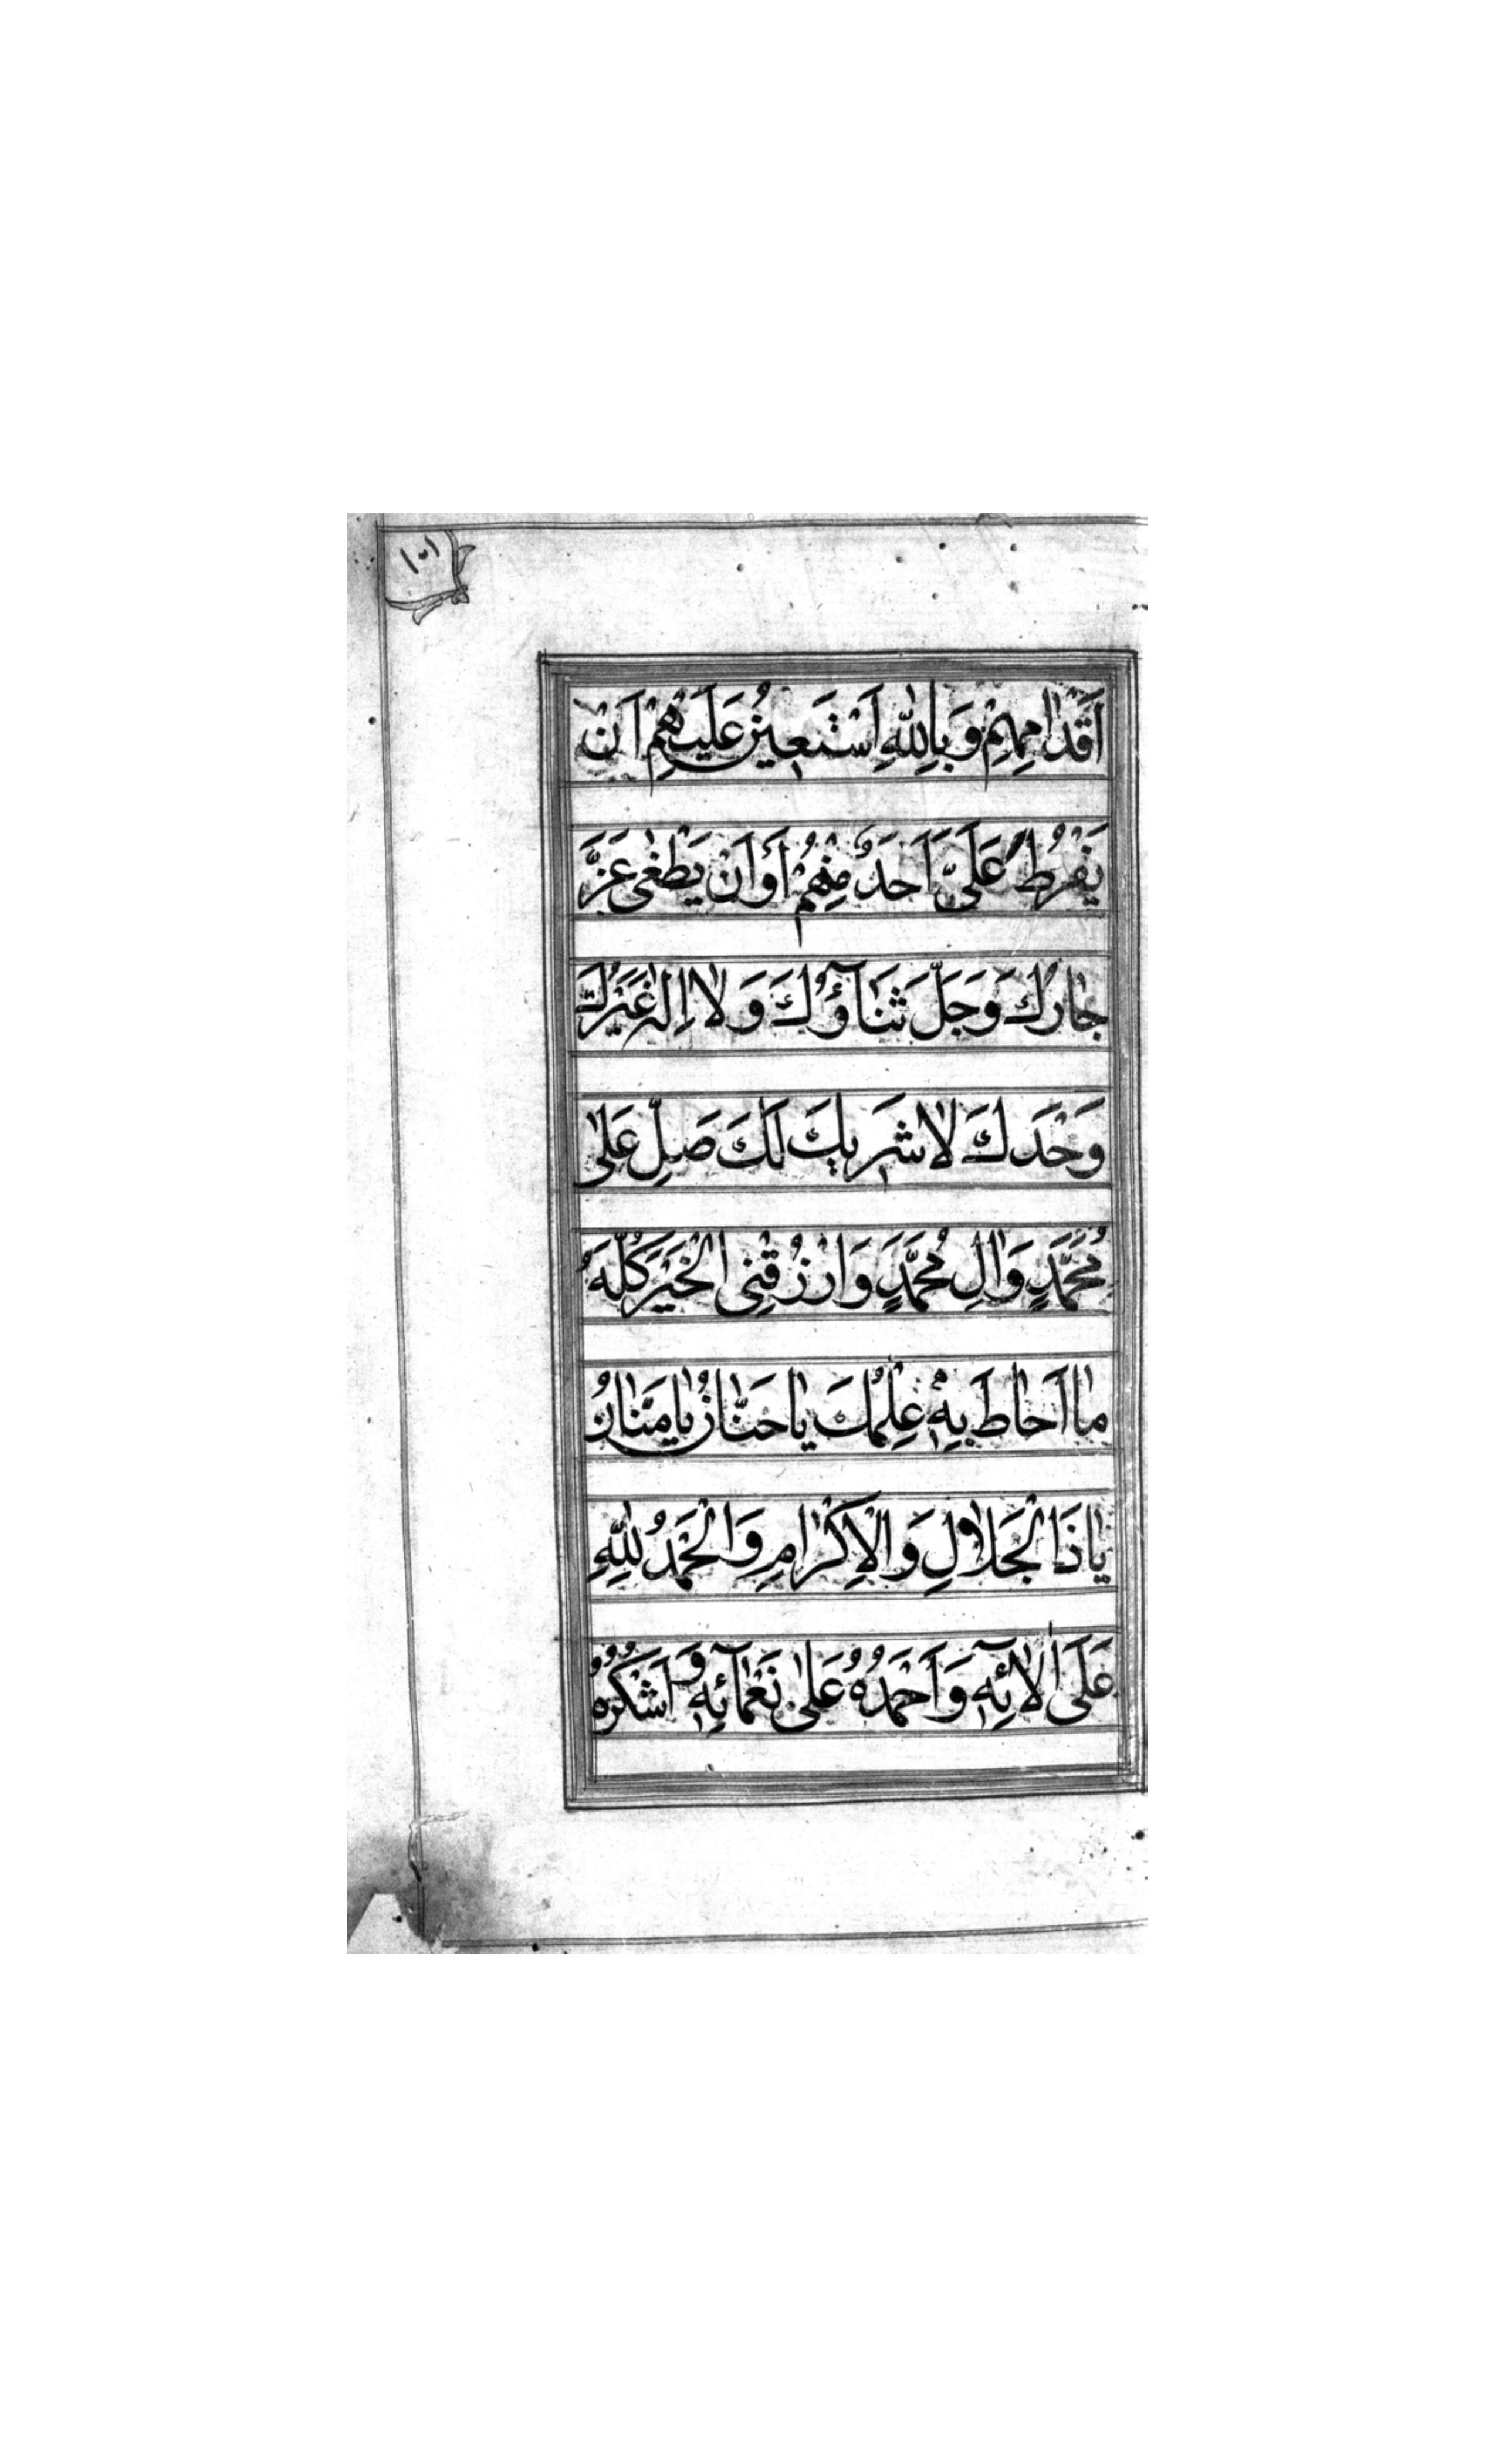 ١٥١
اَقْدٰامِهِمْ وَبِاللّٰهِ اَسْتَعِينُ عَلَيْهِمْ اَنْ
يَفْرُطَ عَلَىَّ اَحَدٌ مِنْهُمْ اَوْ اَنْ يَطْغٰى عَزَّ
جٰارُكَ وَجَلَّ ثَنٰآؤُكَ وَلٰا اِلٰهَ غَيْرُكَ
وَحْدَكَ لٰا شَرِيكَ لَكَ صَلِّ عَلٰى
مُحَمَّدٍ وَاٰلِ مُحَمَّدٍ وَارْزُقْنِى الْخَيْرَ كُلَّهُ
مٰا اَحٰاطَ بِهِ عِلْمُكَ يٰا حَنّٰانُ يٰا مَنّٰانُ
يٰا ذَا الْجَلٰالِ وَالْاِكْرٰامِ وَالْحَمْدُ لِلّٰهِ
عَلَى اٰلٰائِهِ وَاَحْمَدُهُ عَلٰى نَعْمٰآئِهِ وَ اَشْكُرُهُ